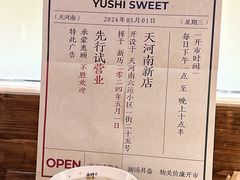 YUSHI SWEET
（天河南）
2024年05月01日
（星期三）
一开市时间
每日下午一点至晚上十点半
天河南新店
开设于天河南六运小区二街二十五号
择于新历二零二四年五月一日
先行试营业
承蒙惠顾 不胜欢迎
特此广告
OPEN
甜汤具备
物美价廉开市